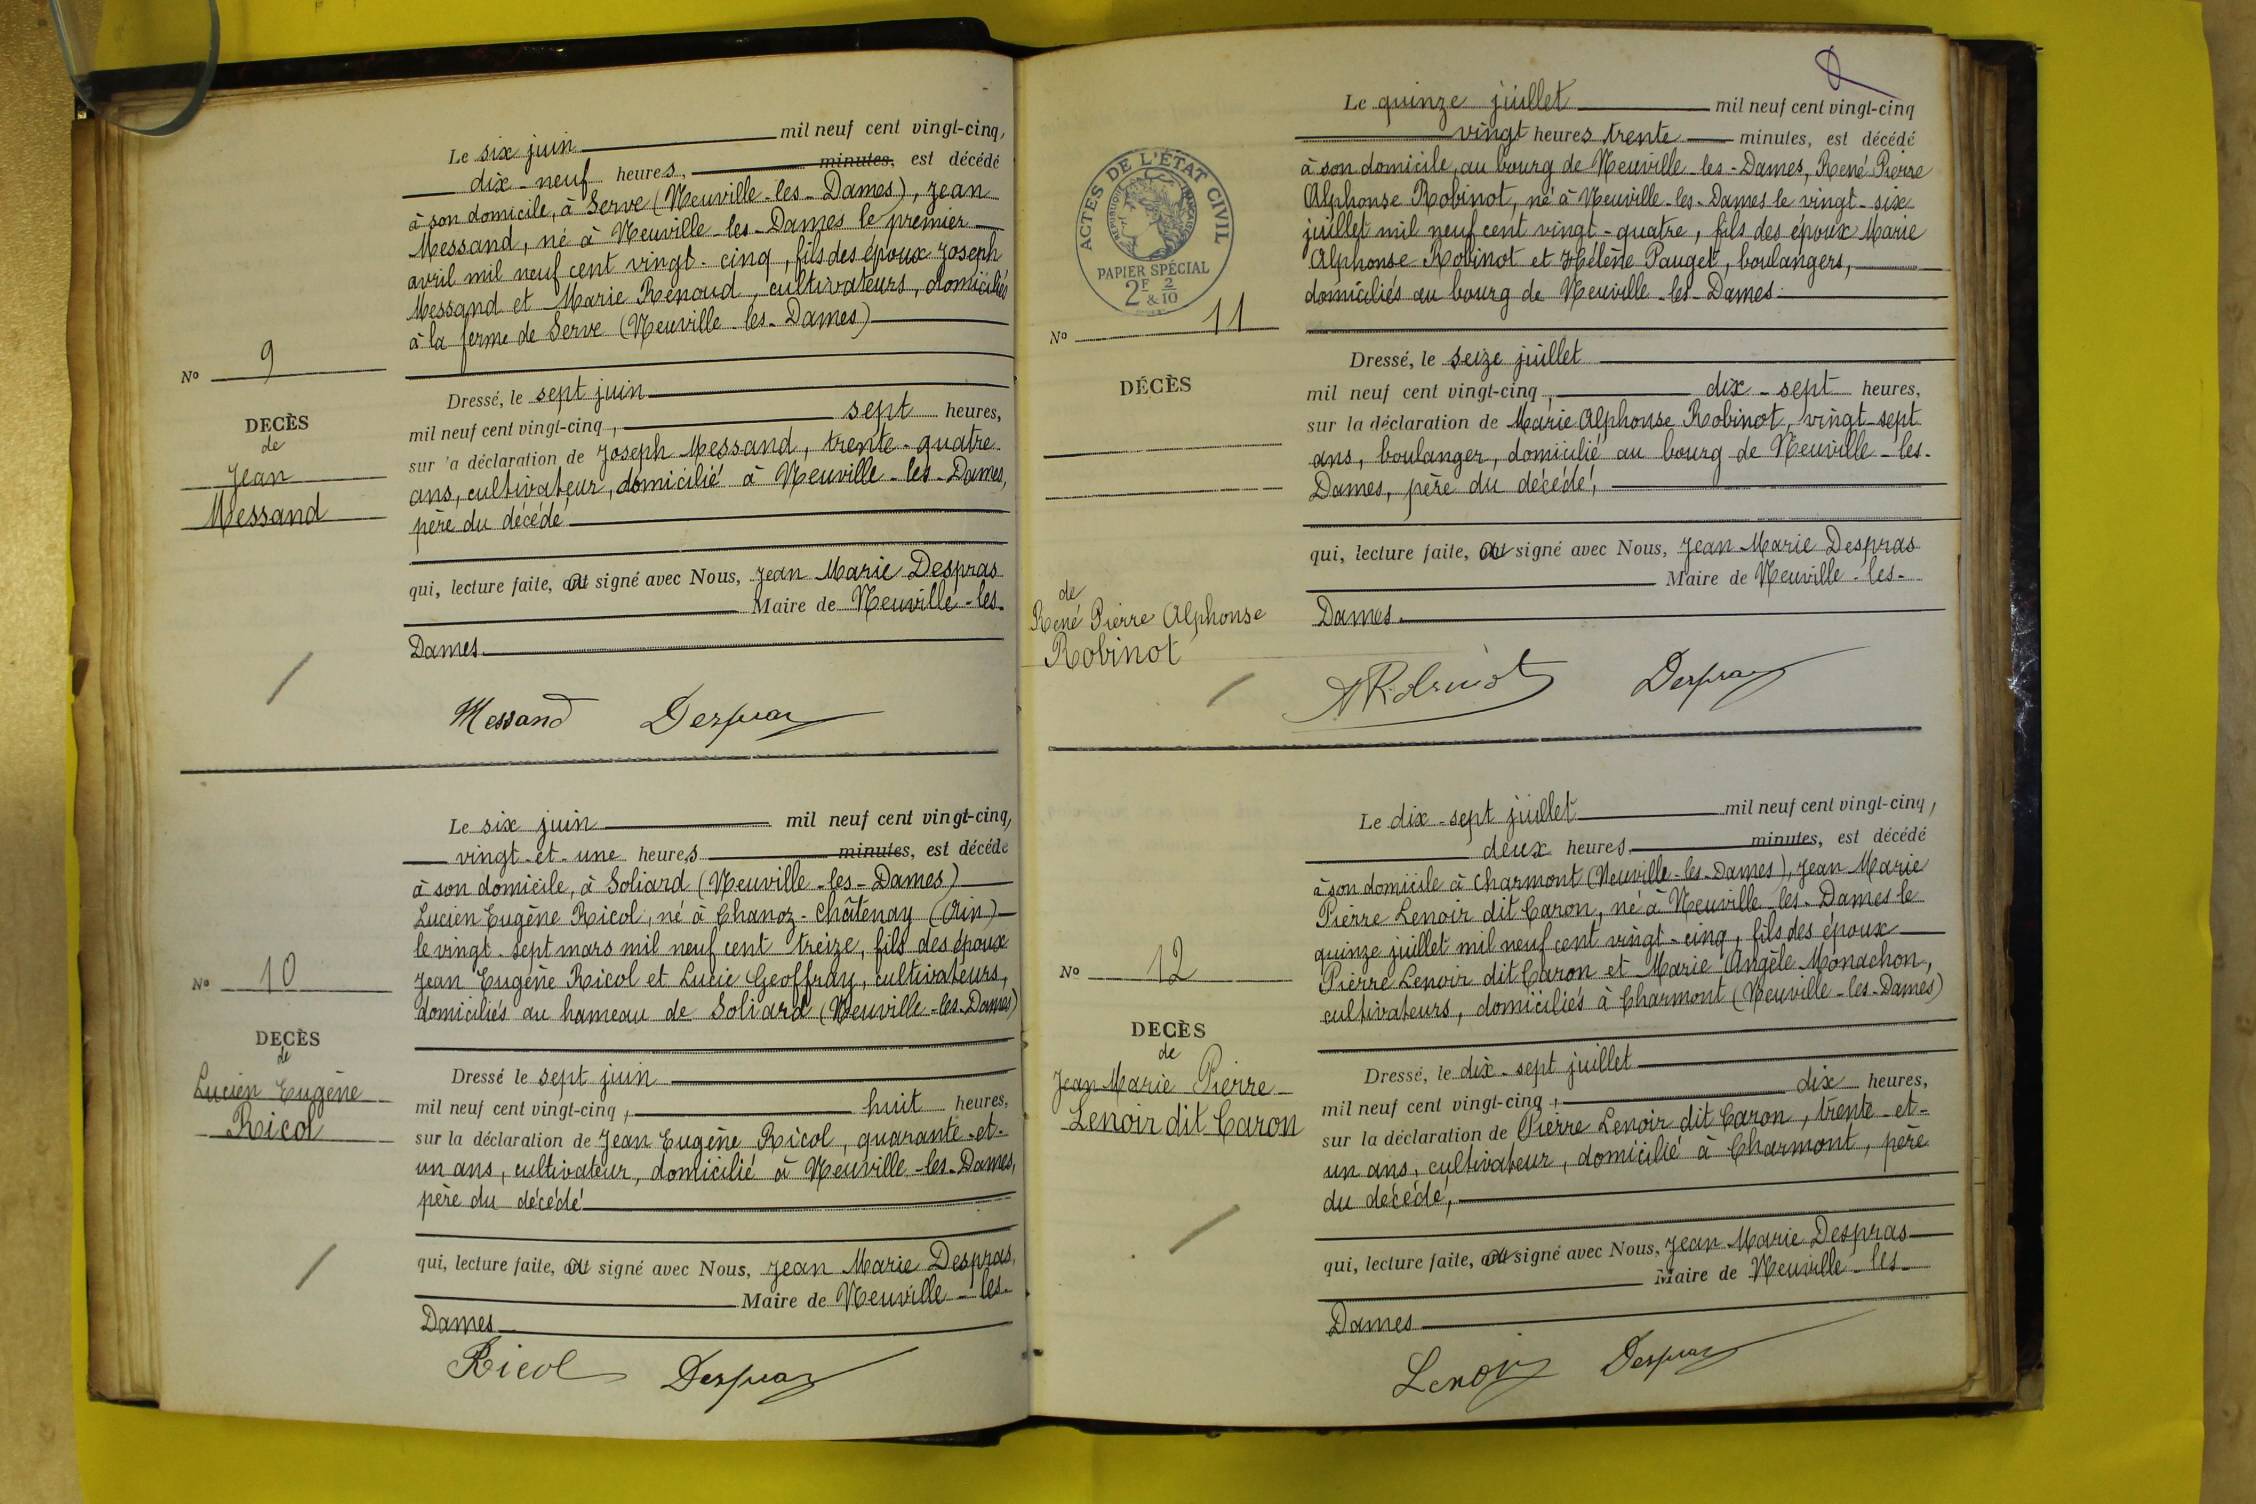 Le six juin mil neuf cent vingt-cinq,
dix-neuf heures, minutes, est décédé
à son domicile, à Serve (Neuville-les-Dames), Jean
Messand, né à Neuville-les-Dames le premier
avril mil neuf cent vingt-cinq, fils des époux Joseph
Messand et Marie Renoud, cultivateurs, domiciliés
à la ferme de Serve (Neuville-les-Dames)
No 9
DECÈS
de
Jean
Messand
Dressé, le sept juin
mil neuf cent vingt-cinq, sept heures,
sur 'a déclaration de Joseph Messand, trente-quatre
ans, cultivateur, domicilié à Neuville-les-Dames,
père du décédé
qui, lecture faite, ont signé avec Nous, Jean Marie Despras
Maire de Neuville-les-
Dames
Messand Despras
Le six juin mil neuf cent vingt-cinq,
vingt-et-une heures minutes, est décédé
à son domicile, à Soliard (Neuville-les-Dames)
Lucien Eugène Ricol, né à Chanoz-Châtenay (Ain)
le vingt-sept mars mil neuf cent treize, fils des époux
Jean Eugène Ricol et Lucie Geoffray, cultivateurs,
domiciliés au hameau de Soliard (Neuville-les-Dames)
No 10
DECÈS
de
Lucien Eugène
Ricol
Dressé le sept juin
mil neuf cent vingt-cinq, huit heures,
sur la déclaration de Jean Eugène Ricol, quarante-et-
un ans, cultivateur, domicilié à Neuville-les-Dames,
père du décédé
qui, lecture faite, ont signé avec Nous, Jean Marie Despras,
Maire de Neuville-les-
Dames
Ricol Despras
Le quinze juillet mil neuf cent vingt-cinq
vingt heures trente minutes, est décédé
à son domicile, au bourg de Neuville-les-Dames, René Pierre
Alphonse Robinot, né à Neuville-les-Dames le vingt-six
juillet mil neuf cent vingt-quatre, fils des époux Marie
Alphonse Robinot et Hélène Pauget, boulangers,
domiciliés au bourg de Neuville-les-Dames
ACTES DE L'ÉTAT CIVIL
RÉPUBLIQUE FRANÇAISE
PAPIER SPÉCIAL
2F & 2/10
No 11
DÉCÈS
de
René Pierre Alphonse
Robinot
Dressé, le seize juillet
mil neuf cent vingt-cinq, dix-sept heures,
sur la déclaration de Marie Alphonse Robinot, vingt-sept
ans, boulanger, domicilié au bourg de Neuville-les-
Dames, père du décédé,
qui, lecture faite, ont signé avec Nous, Jean Marie Despras
Maire de Neuville-les-
Dames.
A Robinot Despras
Le dix-sept juillet mil neuf cent vingt-cinq,
deux heures, minutes, est décédé
à son domicile à Charmont (Neuville-les-Dames), Jean Marie
Pierre Lenoir dit Caron, né à Neuville-les-Dames le
quinze juillet mil neuf cent vingt-cinq, fils des époux
Pierre Lenoir dit Caron et Marie Angèle Monachon,
cultivateurs, domiciliés à Charmont (Neuville-les-Dames)
No 12
DECÈS
de
Jean Marie Pierre
Lenoir dit Caron
Dressé, le dix-sept juillet
mil neuf cent vingt-cinq, dix heures,
sur la déclaration de Pierre Lenoir dit Caron, trente-et-
un ans, cultivateur, domicilié à Charmont, père
du décédé,
qui, lecture faite, ont signé avec Nous, Jean Marie Despras
Maire de Neuville-les-
Dames
Lenoir Despras